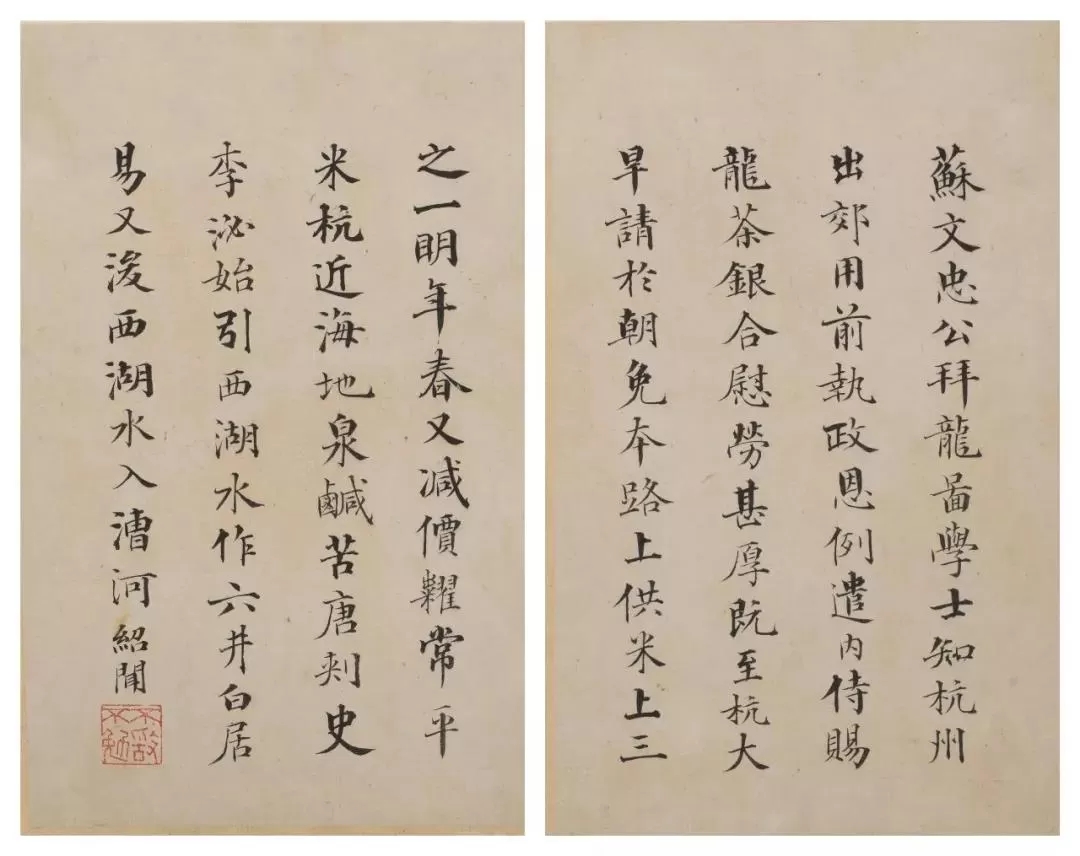 蘇文忠公拜龍啚學士知杭州
出郊用前執政恩例遣內侍賜
龍茶銀合慰勞甚厚既至杭大
旱請於朝免本路上供米上三
之一明年春又減價糶常平
米杭近海地泉鹹苦唐刺史
李泌始引西湖水作六井白居
易又浚西湖水入漕河紹聞
不敢不勉